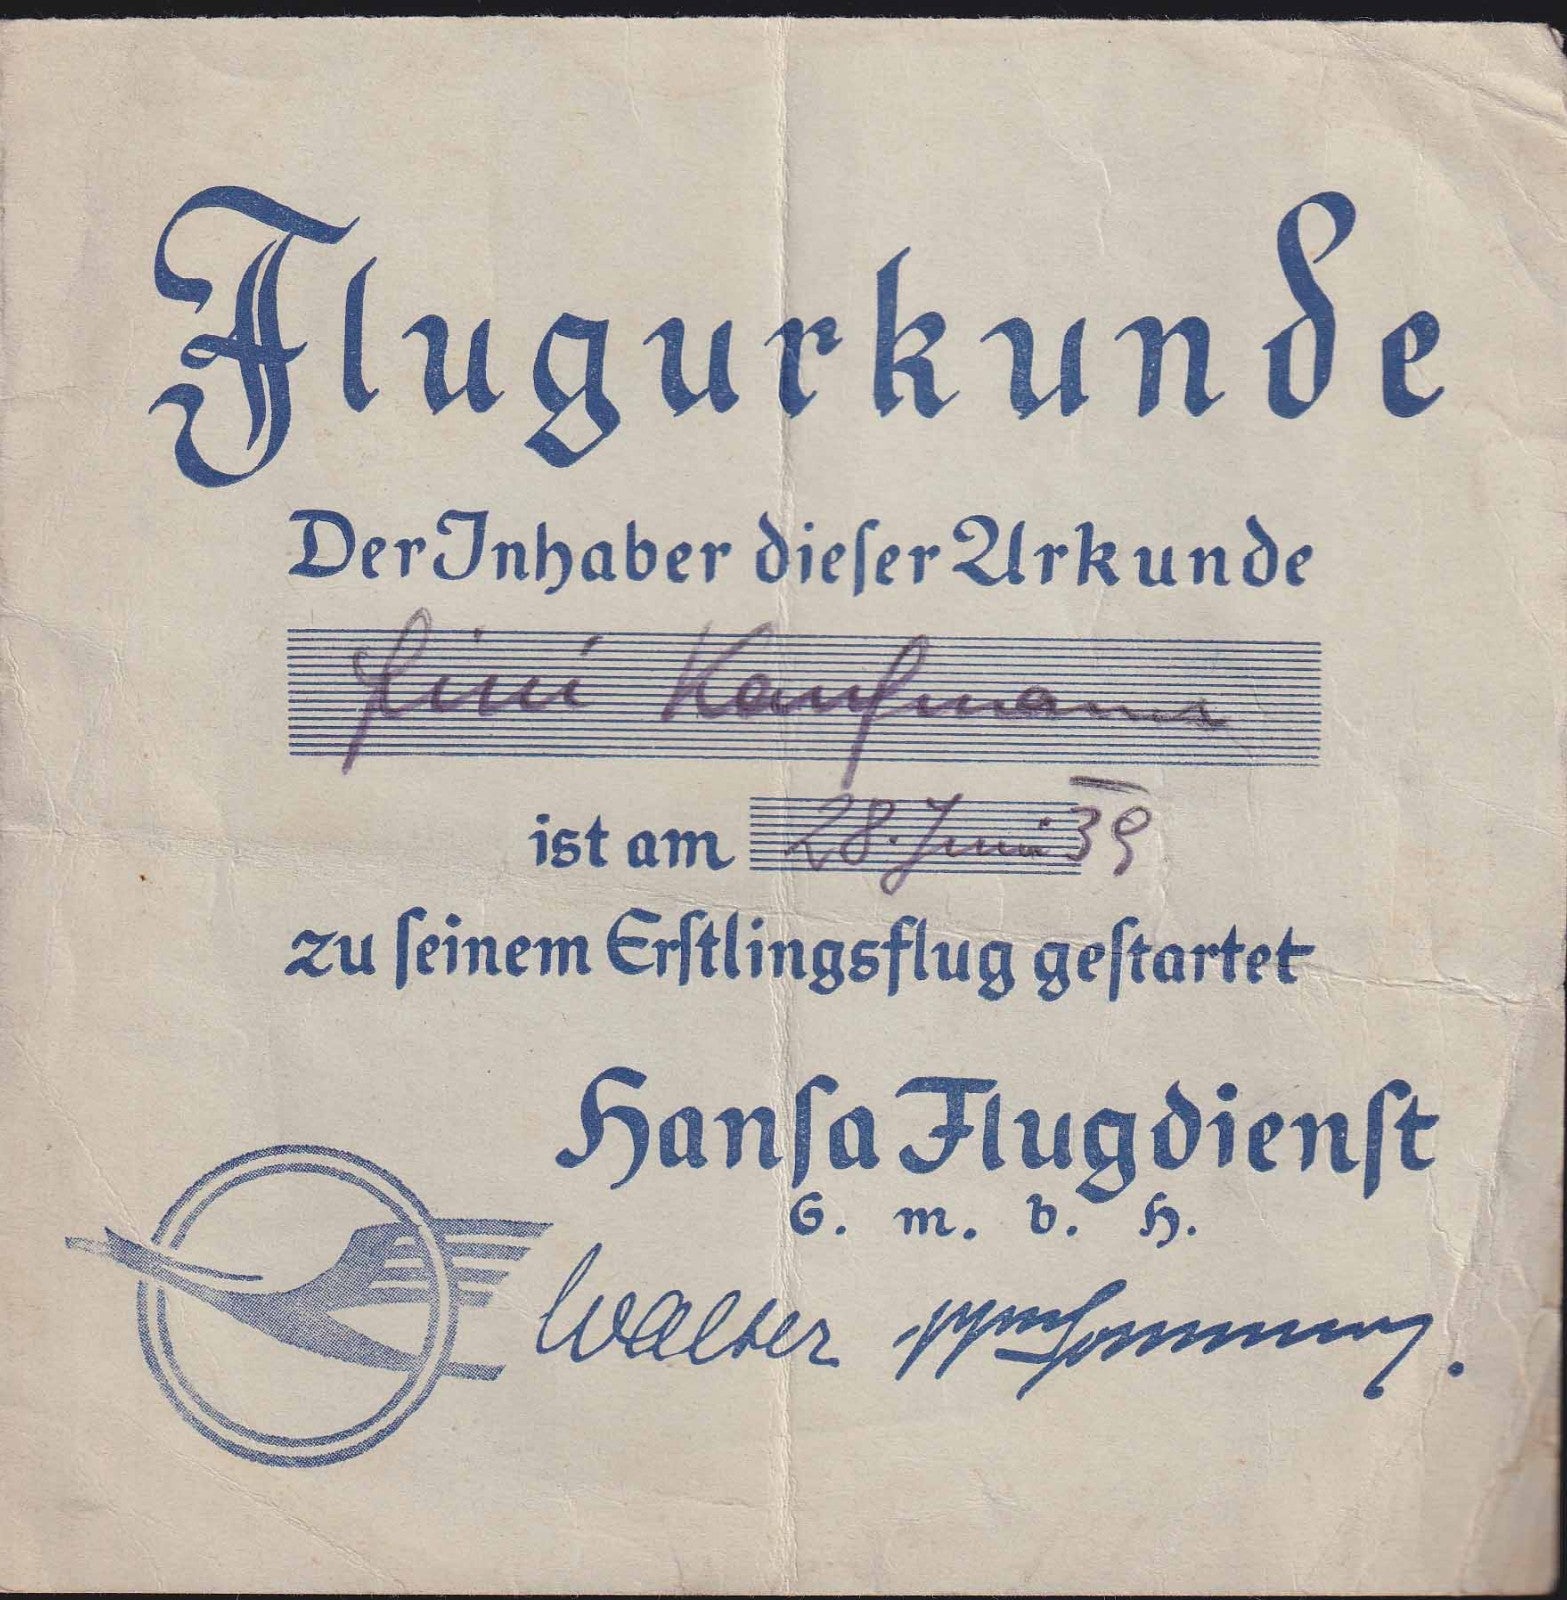 Flugurkunde
Der Inhaber dieser Urkunde
Kaufmann
ist am 28. Juni 39
zu seinem Erstlingsflug gestartet
Hansa Flugdienst
G. m. b. H.
Walter